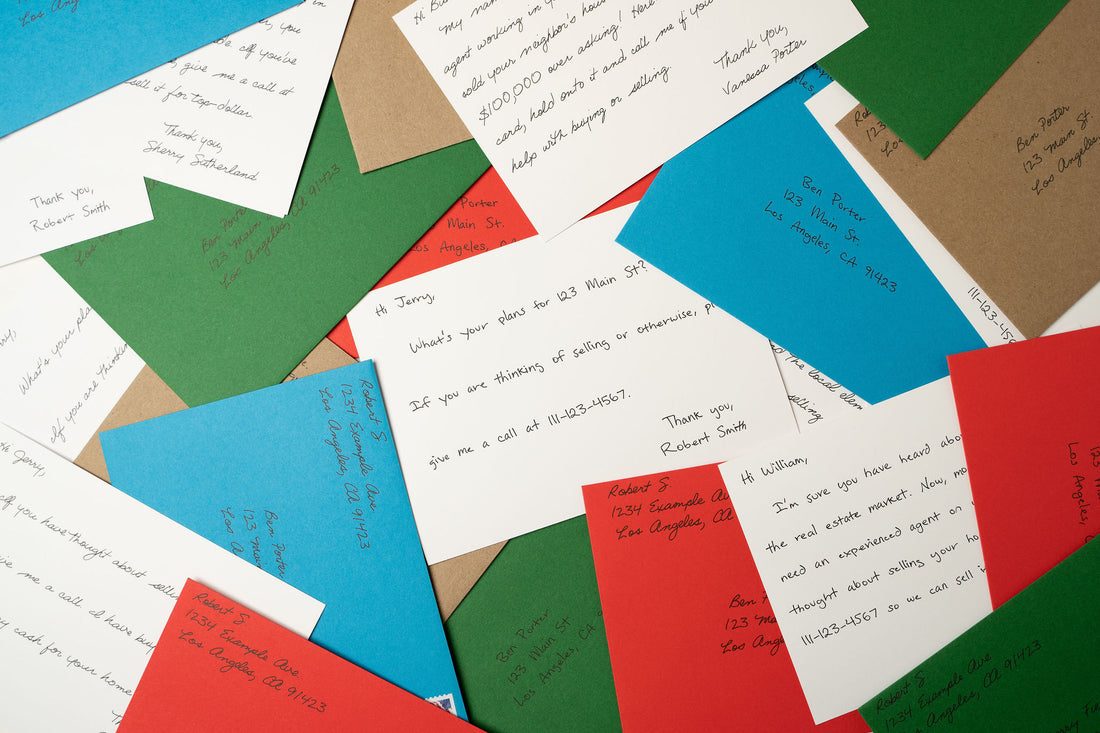 Los Ang
you
if you've
give me a call at
sell it for top-dollar
Thank you,
Sherry Sutherland
Thank you,
Robert Smith
Hi
my nam
agent working in y
sold your neighbor's hous
$100,000 over asking! Here
card, hold onto it and call me if you
help with buying or selling.
Thank you,
Vanessa Porter
Ben Porter
123 Main St.
Los Angeles,
Ben Porter
123 Main
Los Angeles, CA 91423
Porter
Main St.
Los Angeles,
Ben Porter
123 Main St.
Los Angeles, CA 91423
Hi Jerry,
What's your plans for 123 Main St?
If you are thinking of selling or otherwise, p
give me a call at 111-123-4567.
Thank you,
Robert Smith
111-123-456
The local
selling
What's your pla
If you are thinkin
Robert S
1234 Example Ave
Los Angeles, CA 91423
Ben Porter
123 Main
Los A
Jerry,
If you have thought about sellin
me a call. I'd have buy
cash for your home
Robert S
1234 Example Ave
Los Angeles, CA 91423
Ben Porter
123 Main St
Los Angeles, CA
Robert S
1234 Example Av
Los Angeles, CA
Ben
123 Ma
Los Ang
Hi William,
I'm sure you have heard abo
the real estate market. Now, mo
need an experienced agent on
thought about selling your ho
111-123-4567 so we can sell i
Los Angeles,
Robert S
1234 Example Ave
Los Angeles, CA 91423